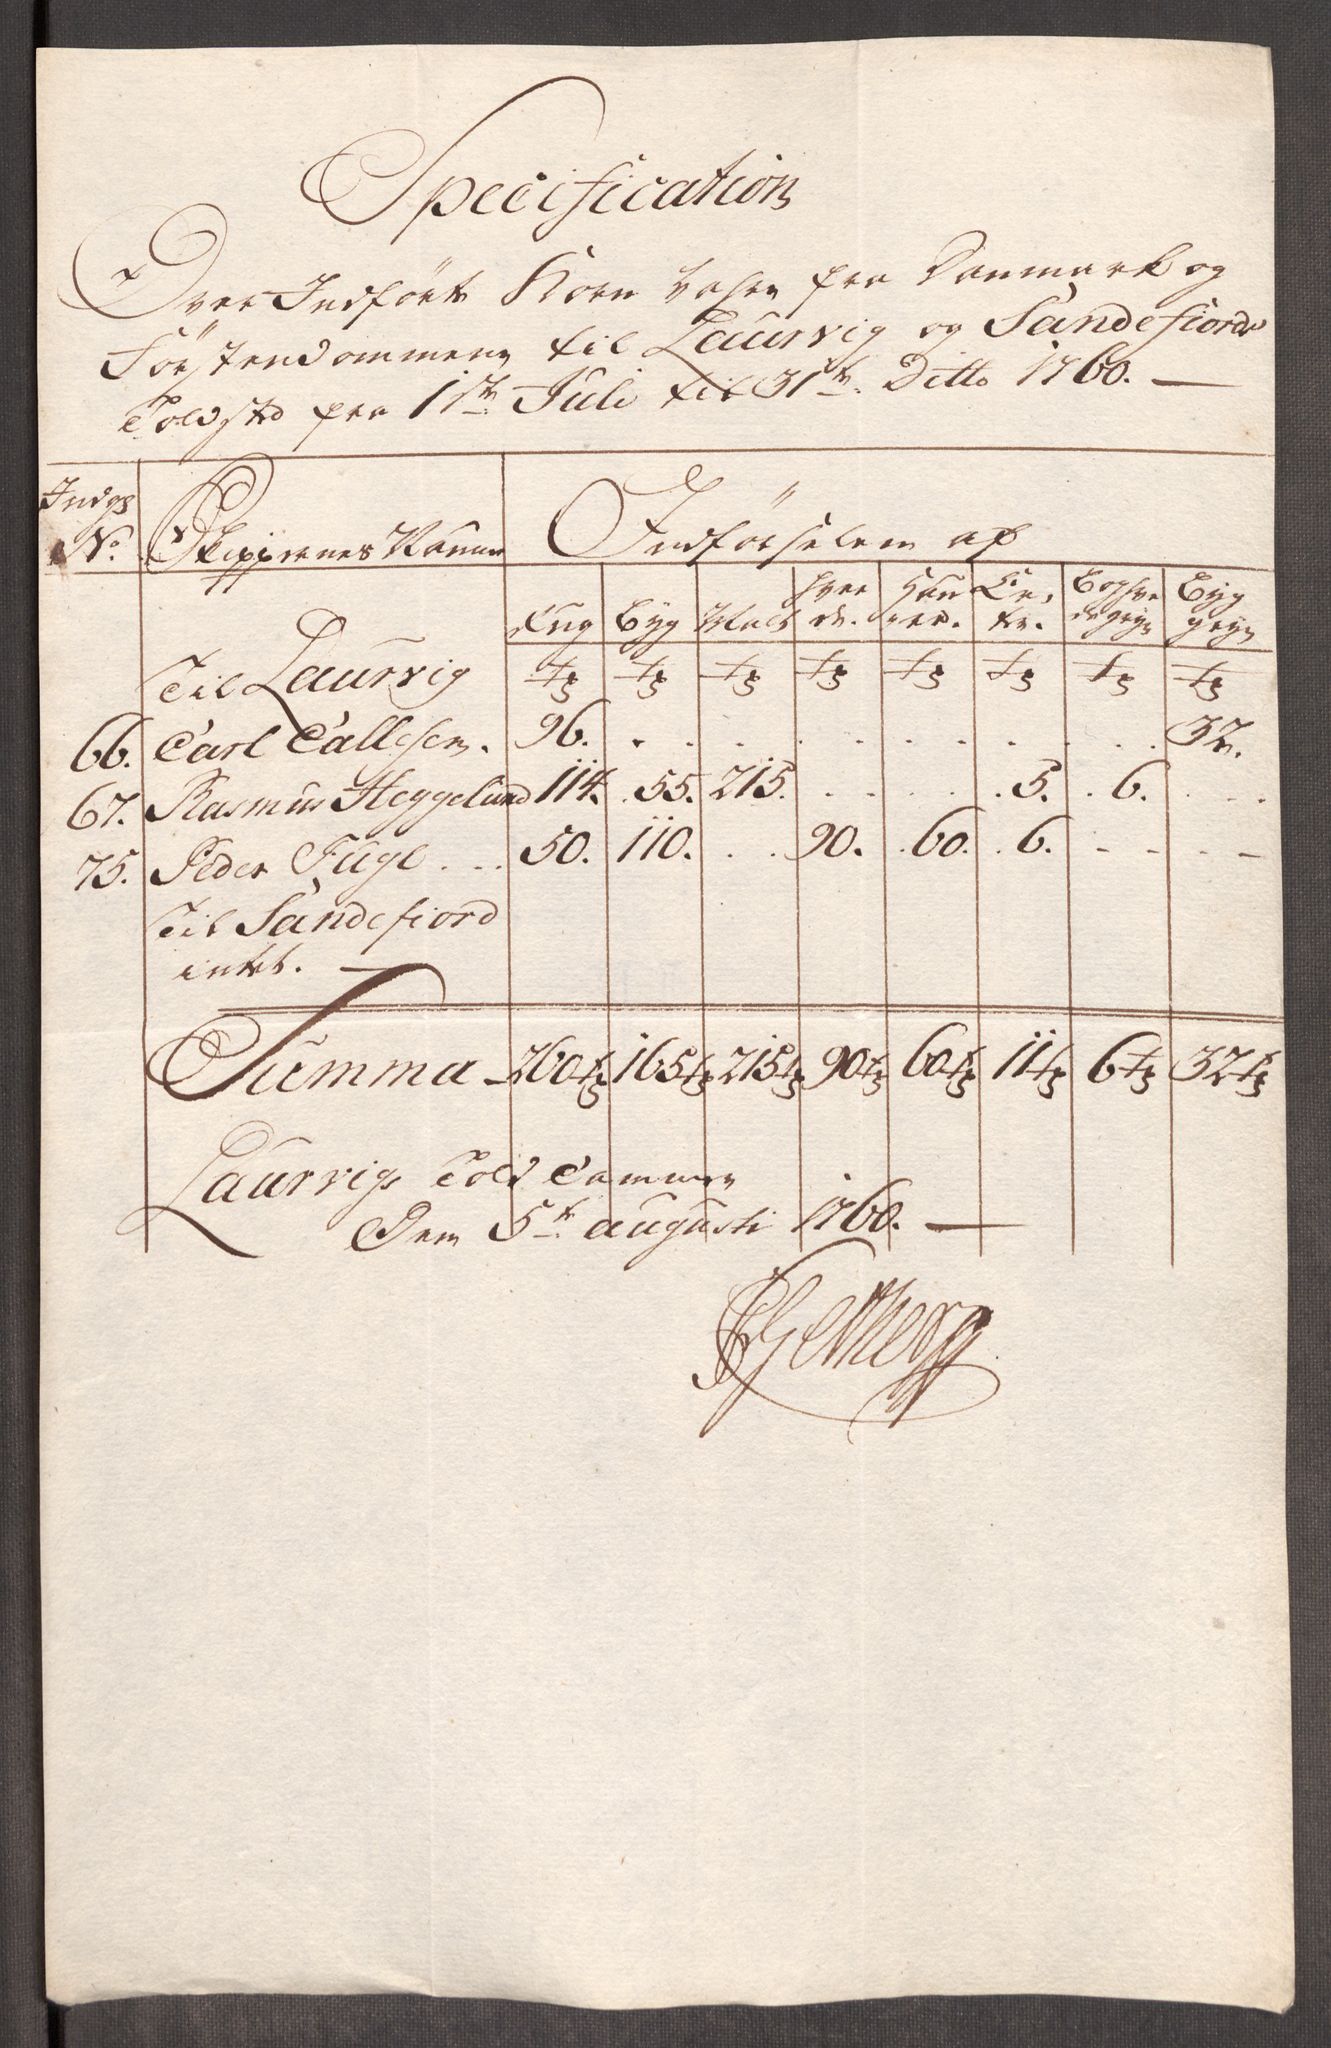 Specification
Over Indført Korn Vahre fra Danmark og
Førstendommene til Laurvig og Sandefiords
Toldsted fra 1ste Juli til 31te Ditto 1760.
Indgs No. Skippernes Nafne Indførselen af
Rug Byg Malt Hvede. Hauere. Erter. Boghvedegryn Byggryn
Til Laurvig tr tr tr tr tr tr tr tr
66. Carl Callesen. 96. 32.
67. Rasmus Heggelund 114. 55. 215. 5. 6.
75. Peder Fugl 50. 110. 90. 60. 6.
Til Sandefiord
intet.
Summa 260 tr 165 tr 215 tr 90 tr 60 tr 11 tr 6 tr 32 tr
Laurvigs Told Cammer
Den 5te Augusti 1760.